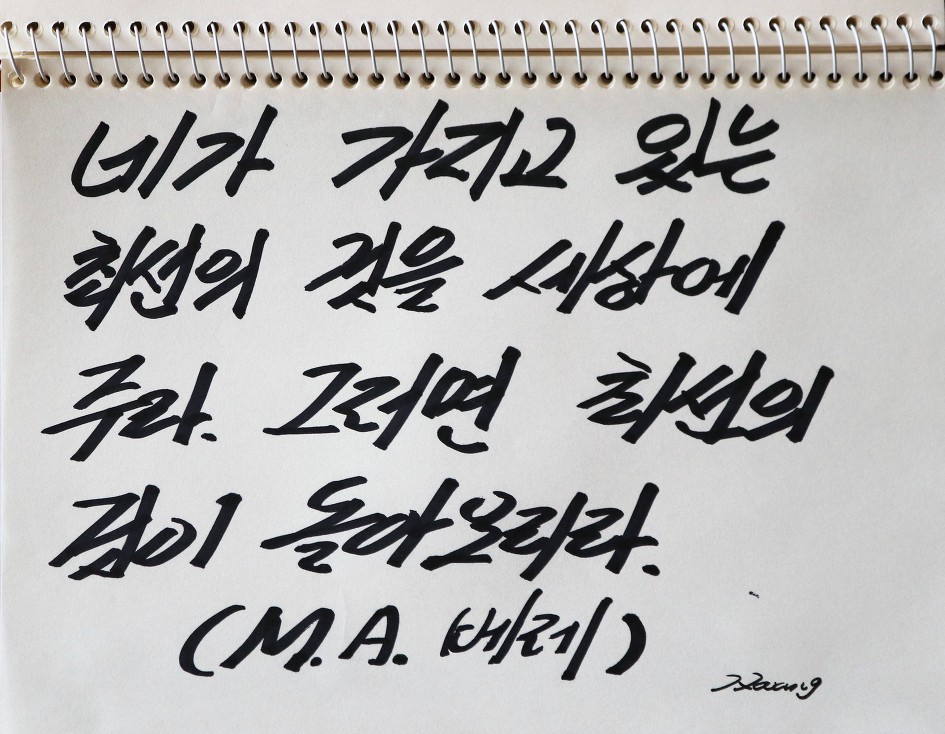 네가 가지고 있는
최선의 것을 세상에
주라. 그러면 최선의
것이 돌아오리라.
(M.A. 베레)